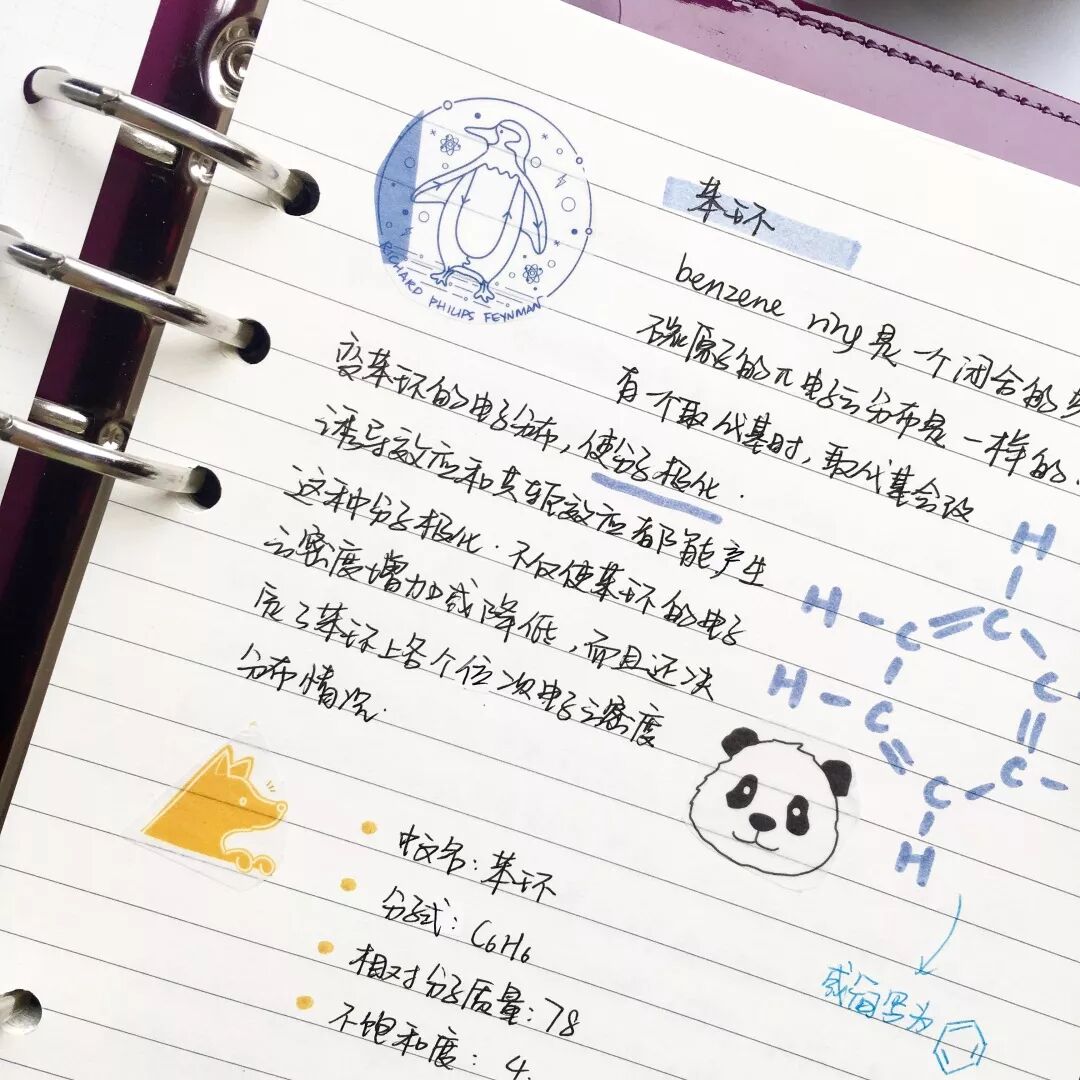 RICHARD PHILIPS FEYNMAN
苯环
benzene ring是一个闭合的
碳原子的π电子云分布是一样的.
有一个取代基时, 取代基会改
变苯环的电子分布, 使分子极化.
诱导效应和共轭效应都能产生
这种分子极化. 不仅使苯环的电子
云密度增加或降低, 而且还决
定了苯环上各个位次电子云密度
分布情况.
H
H C C
H C C
C C
H
中文名: 苯环
分子式: C6H6
相对分子质量: 78
不饱和度: 4.
或缩写为